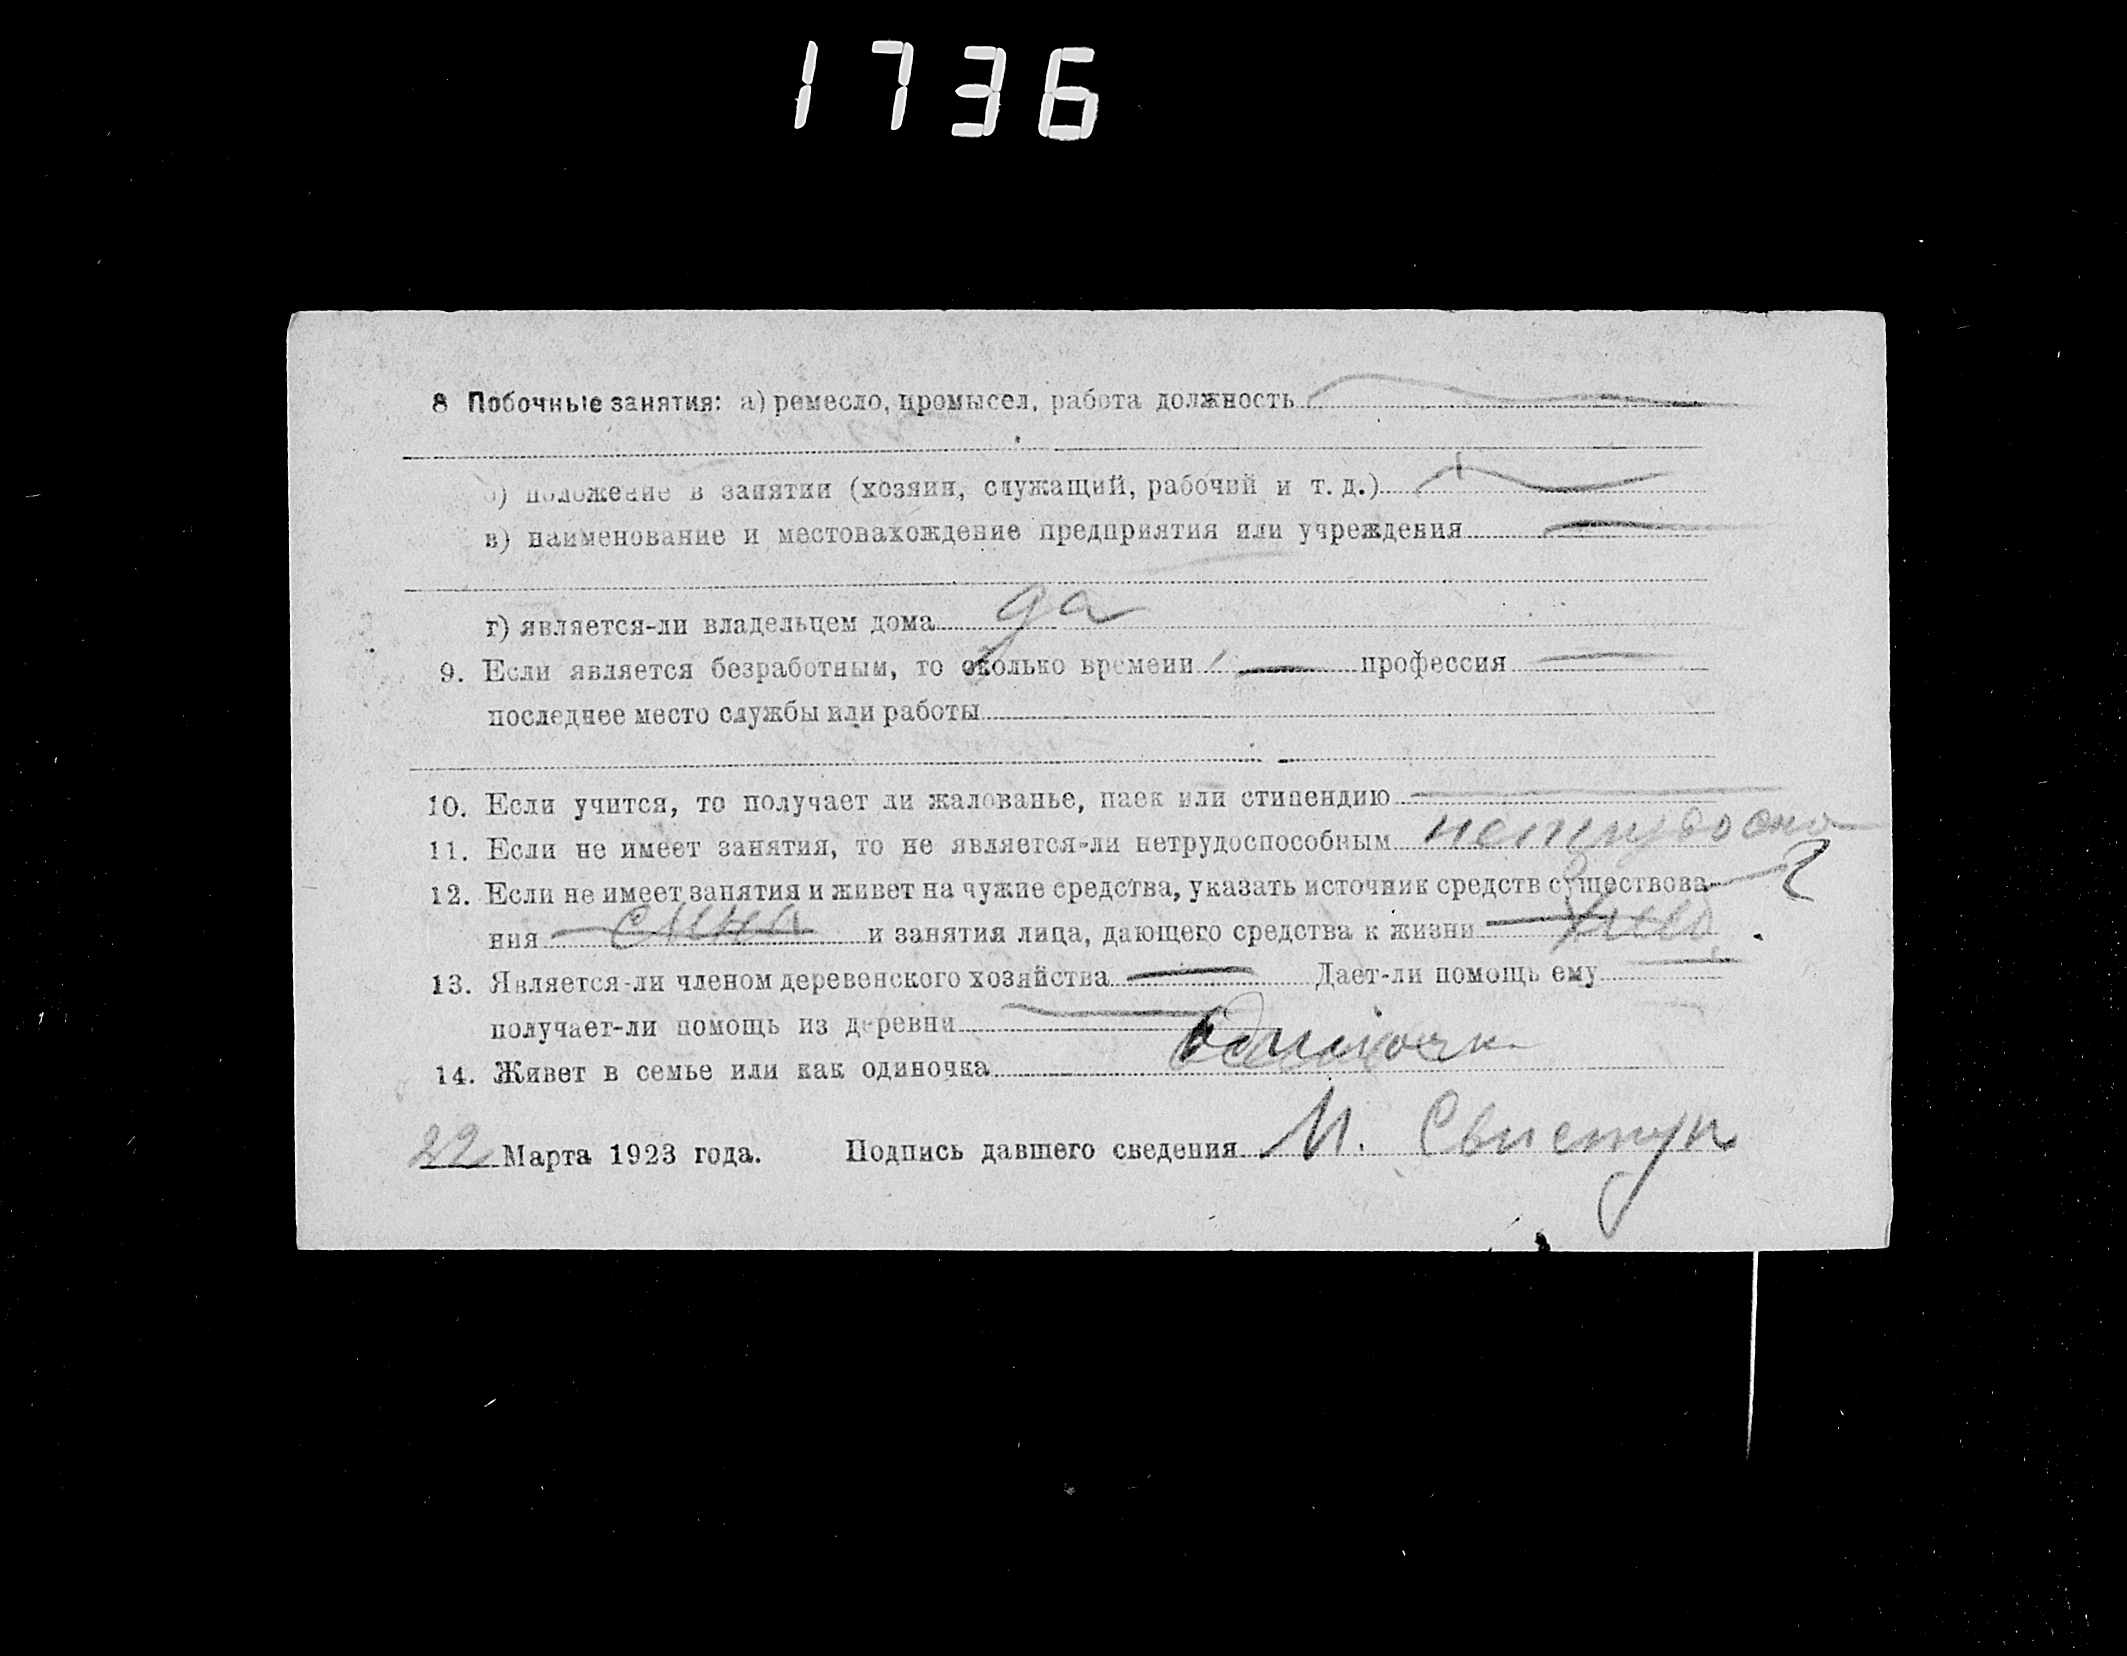 1736
8 Побочные занятия: а) ремесло, промысел, работа должность
б) положение в занятии (хозяин, служащий, рабочий и т. д.)
в) наименование и местонахождение предприятия или учреждения
г) является-ли владельцем дома да
9. Если является безработным, то сколько времени — профессия —
последнее место службы или работы
10. Если учится, то получает ли жалованье, паек или стипендию —
11. Если не имеет занятия, то не является-ли нетрудоспособным нетрудоспо
12. Если не имеет занятия и живет на чужие средства, указать источник средств существова-
ния сына и занятия лица, дающего средства к жизни
13. Является-ли членом деревенского хозяйства — Дает-ли помощь ему —
получает-ли помощь из деревни —
14. Живет в семье или как одиночка одиночк
22 Марта 1923 года. Подпись давшего сведения И. Свистун